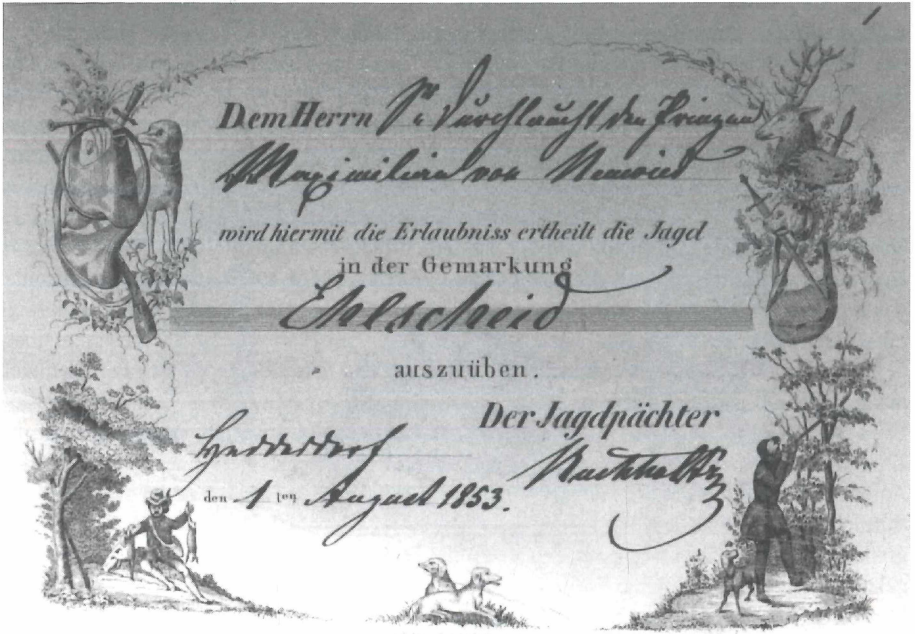 Dem Herrn Sr. Durchlaucht den Prinzen
Maximilian von Neuwied
wird hiermit die Erlaubniss ertheilt die Jagd
in der Gemarkung
Ehlscheid
auszuüben.
Der Jagdpächter
Heddesdorf
den 1 ten August 1853.